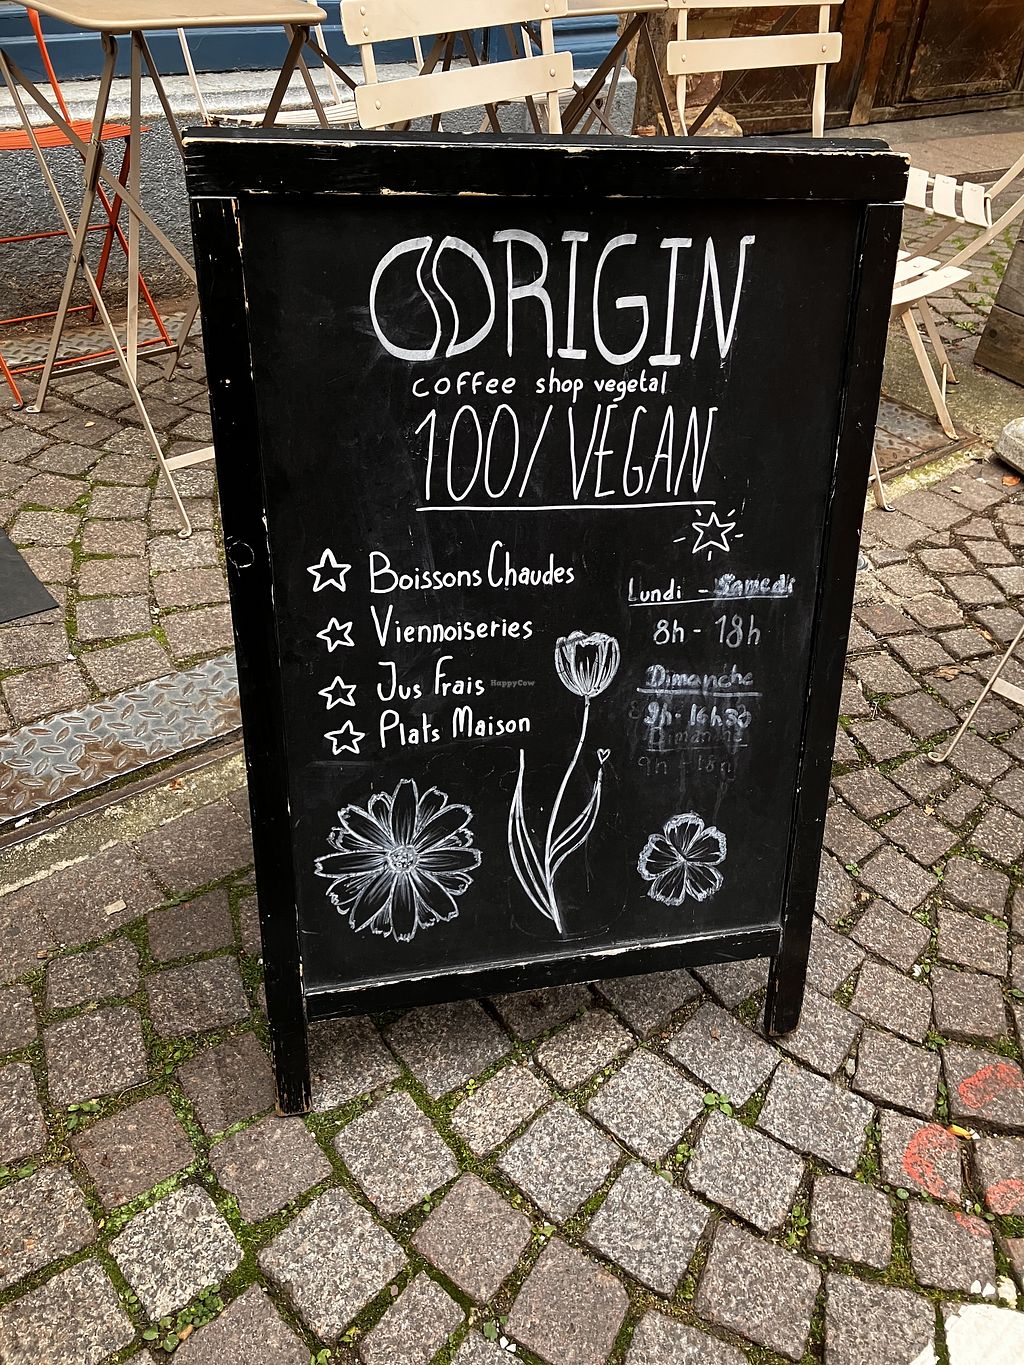 ORIGIN
coffee shop vegetal
100/ VEGAN
Boissons Chaudes
Viennoiseries
Jus Frais
Plats Maison
Lundi - Samedi
8h - 18h
Dimanche
9h - 16h30
Dimanche
9h - 18h
HappyCow